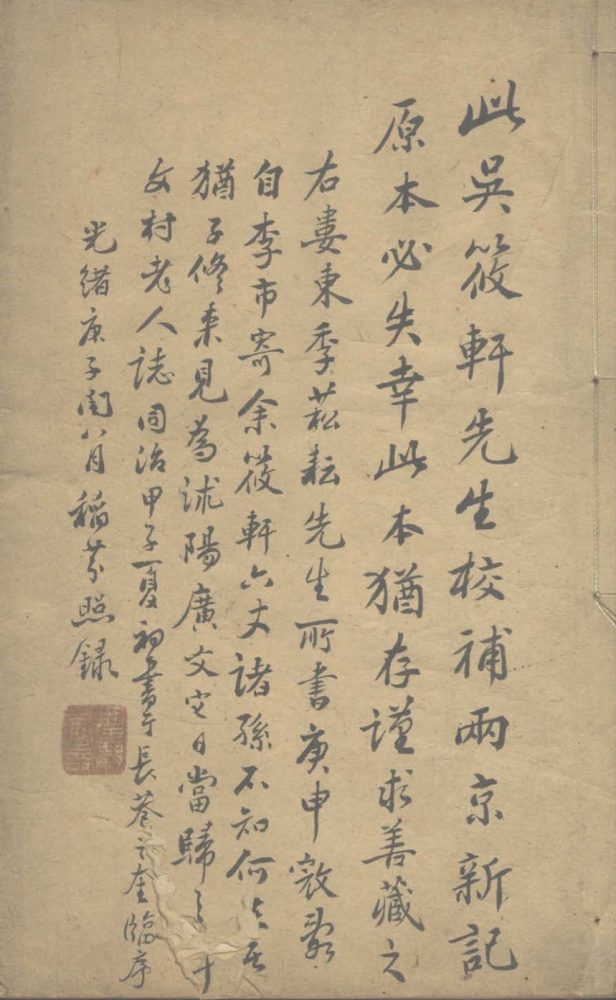 此吳筱軒先生校補兩京新記
原本必失幸此本猶存謹求善藏之
右婁東季菘耘先生所書庚申
自李市寄余筱軒六丈諸孫不知何
猶子修來見為沭陽廣文它日當歸之
文村老人誌同治甲子夏初書于長
光緒庚子閏八月稻芬照錄